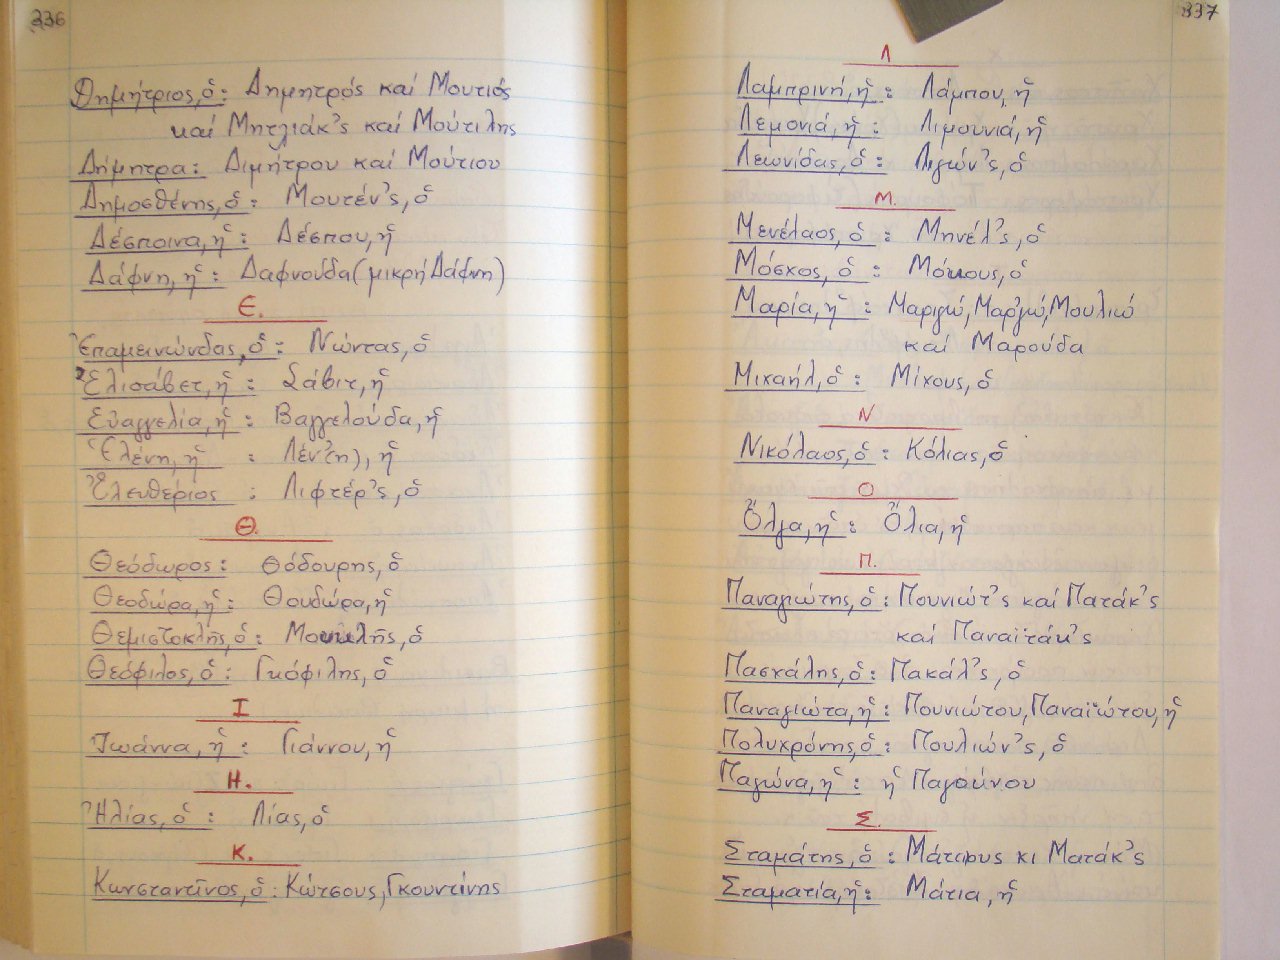 336
Δημήτριος, ὁ: Δημητρός καί Μουτιός
καί Μητλιάκ'ς καί Μούτιλης
Δήμητρα: Διμήτρου καί Μούτιου
Δημοσθένης, ὁ: Μουτέν'ς, ὁ
Δέσποινα, ἡ: Δέσπου, ἡ
Δάφνη, ἡ: Δαφνούδα (μικρή Δάφνη)
Ε.
Ἐπαμεινώνδας, ὁ: Νώντας, ὁ
Ἐλισάβετ, ἡ: Σάβιτ, ἡ
Εὐαγγελία, ἡ: Βαγγελούδα, ἡ
Ἑλένη, ἡ: Λέν'(η), ἡ
Ἐλευθέριος: Λιφτέρ'ς, ὁ
Θ.
Θεόδωρος: Θόδουρης, ὁ
Θεοδώρα, ἡ: Θουδώρα, ἡ
Θεμιστοκλῆς, ὁ: Μουκλῆς, ὁ
Θεόφιλος, ὁ: Γκόφιλης, ὁ
Ι
Ἰωάννα, ἡ: Γιάννου, ἡ
Η.
Ἠλίας, ὁ: Λίας, ὁ
Κ.
Κωνσταντῖνος, ὁ: Κώτσους, Γκουντίνης
337
Λ
Λαμπρινή, ἡ: Λάμπου, ἡ
Λεμονιά, ἡ: Λιμουνιά, ἡ
Λεωνίδας, ὁ: Λιγών'ς, ὁ
Μ.
Μενέλαος, ὁ: Μηνέλ'ς, ὁ
Μόσχος, ὁ: Μόκους, ὁ
Μαρία, ἡ: Μαριγώ, Μαρ'γώ, Μουλιώ
καί Μαρούδα
Μιχαήλ, ὁ: Μίχους, ὁ
Ν
Νικόλαος, ὁ: Κόλιας, ὁ
Ο
Ὄλγα, ἡ: Ὄλια, ἡ
Π.
Παναγιώτης, ὁ: Πουνιώτ'ς καί Πατάκ'ς
καί Παναϊτάκ'ς
Πασχάλης, ὁ: Πακάλ'ς, ὁ
Παναγιώτα, ἡ: Πουνιώτου, Παναϊώτου, ἡ
Πολυχρόνης, ὁ: Πουλιών'ς, ὁ
Παγώνα, ἡ: ἡ Παγούνου
Σ.
Σταμάτης, ὁ: Μάτιρυς κι Ματάκ'ς
Σταματία, ἡ: Μάτια, ἡ